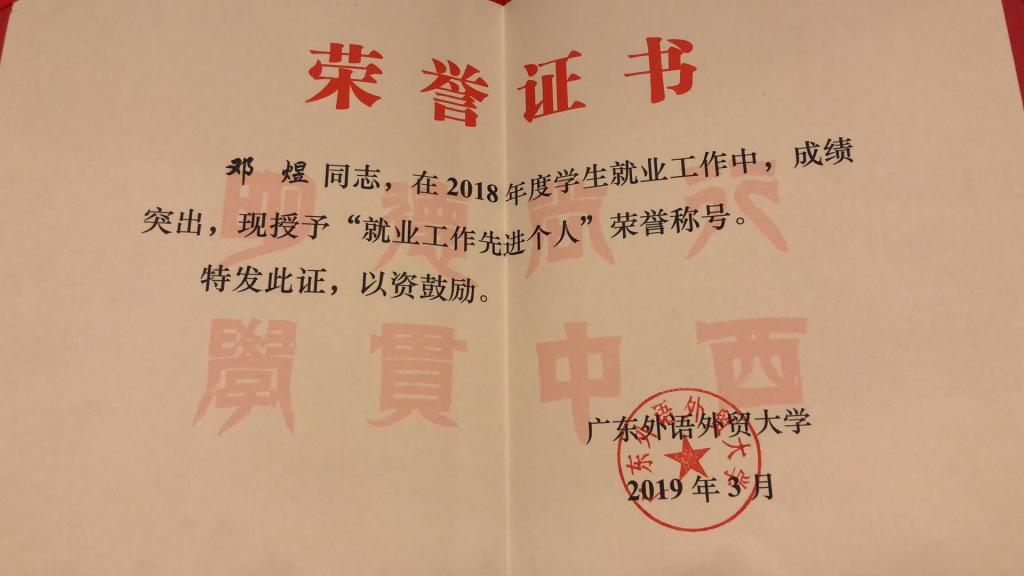 荣誉证书
邓 煜 同志，在 2018 年度学生就业工作中，成绩
突出，现授予“就业工作先进个人”荣誉称号。
特发此证，以资鼓励。
明德尚行
學貫中西
广东外语外贸大学
广东外语外贸大学
2019 年 3 月